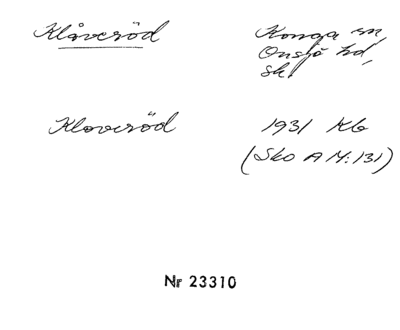 Klåveröd
Konga sn,
Onsjö hd,
Sk.
Kloveröd
1931 Kb
(Sko A M:131)
Nr 23310